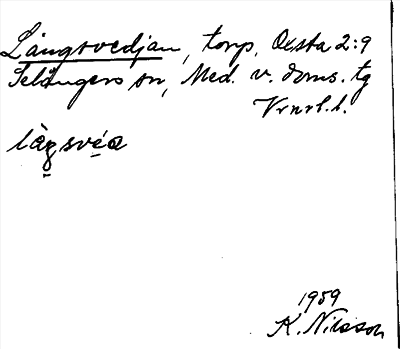 Långsvedjan, torp, Östa 2:9
Selångers sn, Med. v. doms. tg
Vrnrl. l.
làgsvéa
1959
K. Nilsson